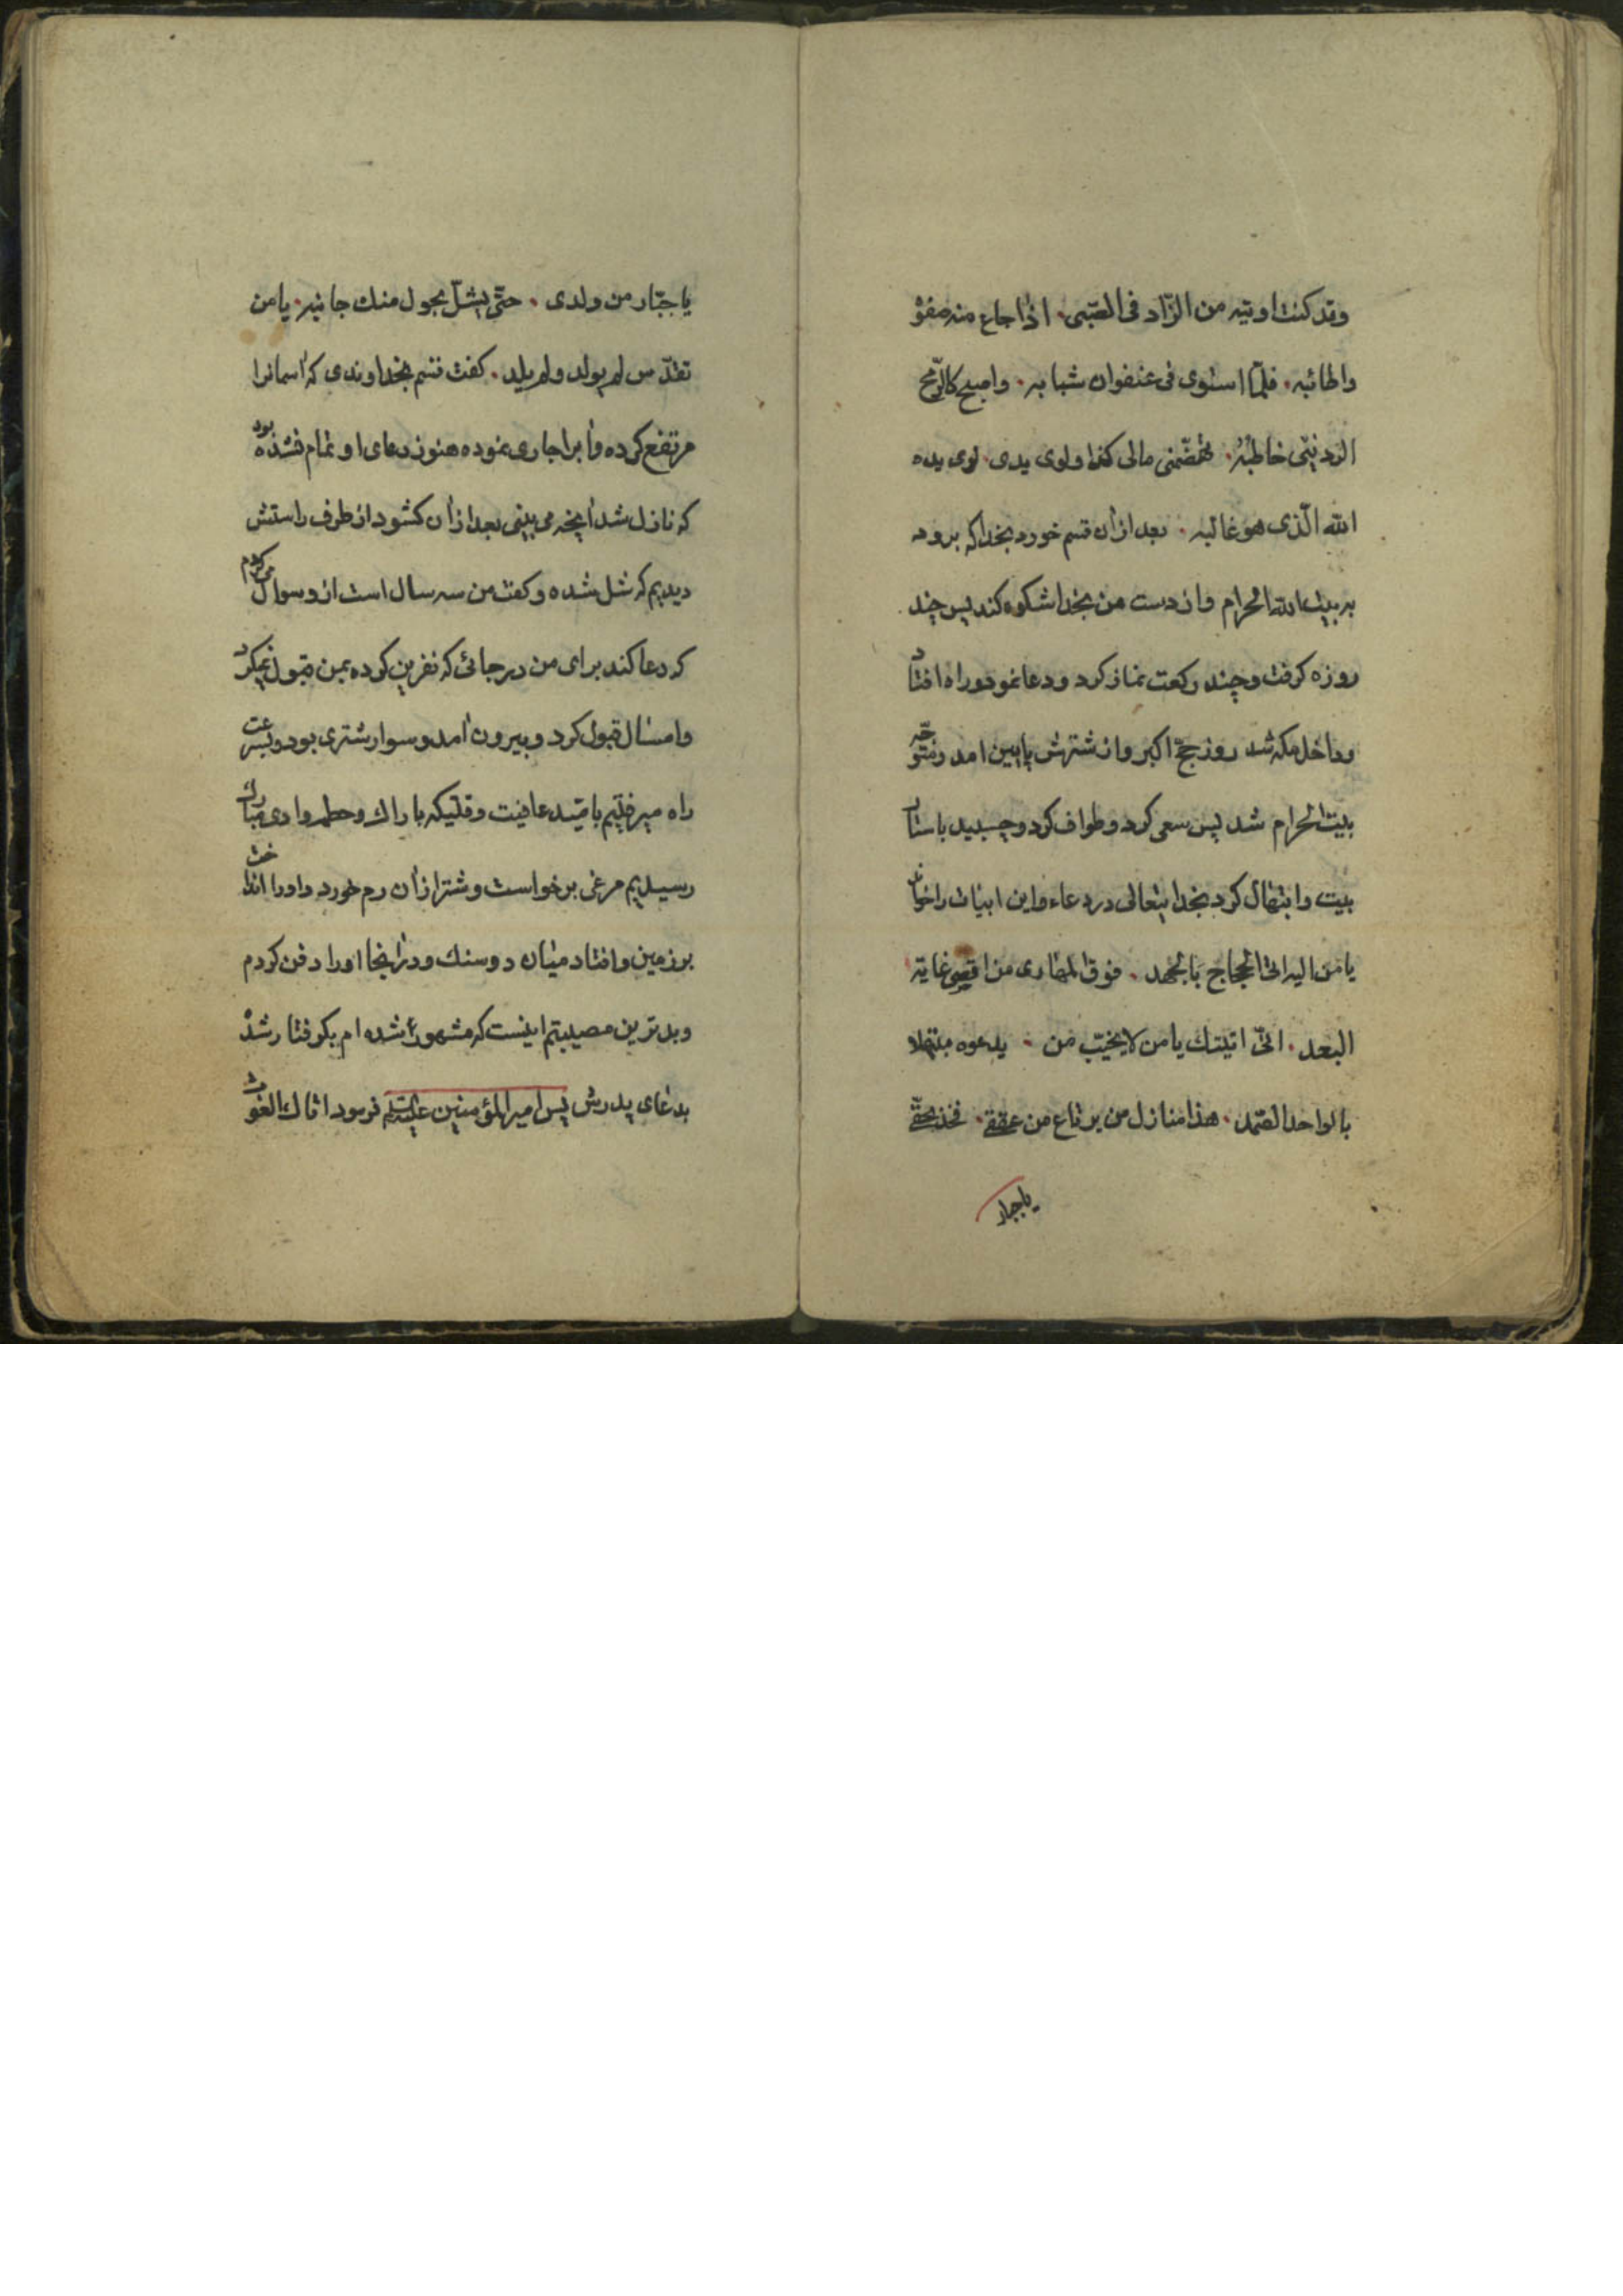 وقد كنت اوتيه من الزّاد فى الصّبى. اذا جاع منه صفوُ
واطائبه. فلمّا استوى فى عنفوان شبابه. واصبح كالرّمح
الردينىّ خاطبُهُ. تهضّمنى مالى كذا ولوى يدى. لوى يده
الله الّذى هو غالبه. بعد ازان قسم خورد بخدا که برود
به بیت الله الحرام واز دست من بخدا شکوه کند پس چند
روزه کرفت وچند رکعت نماز کرد ودعا نمود وراه افتاد
وداخل مکه شد روز حجّ اکبر واز شترش پایین امد ومتوجّه
بیت الحرام شد پس سعی کرد وطواف کرد وچسبید باستار
بیت وابتهال کرد بخدایتعالی در دعاء واین ابیات را خواند
یا من الیه اتى الحجاج بالجهد. فوق المهاری من اقصی غایة
البعد. انّی اتیتك یا من لا یخیّب من. یدعوه مبتهلا
بالواحد الصّمد. هذا منازل من یرتاع من عققی. فخذ بحقّی
یا جبار
یا جبّار من ولدی. حتّی یشلّ بحول منك جانبه. یا من
تقدّس لم یولد ولم یلد. کفت قسم بخداوندی که اسمانرا
مرتفع کرده وآبرا جاری نموده هنوز دعای او تمام نشده بود
که نازل شد آنچه می بینی بعد ازان کشود از طرف راستش
دیدیم که شل شده وکفت من سه سال است از او سوال می کردم
که دعا کند برای من در جائی که نفرین کرده بمن قبول نمیکرد
وامسال قبول کرد وبیرون آمد وسوار شتری بود وبسرعت
راه میرفتیم بامّید عافیت وقتیکه باراك وحطم وادی تبارك
رسیدیم مرغی برخواست وشتر ازان رم خورد واورا انداخت
بر زمین وافتاد میان دوسنك ودر آنجا اورا دفن کردم
وبدترین مصیبتم اینست که مشهور شده ام بکرفتار شد
بدعای پدرش پس امیرالمؤمنین علیه السّلم فرمود اتاك الغوث